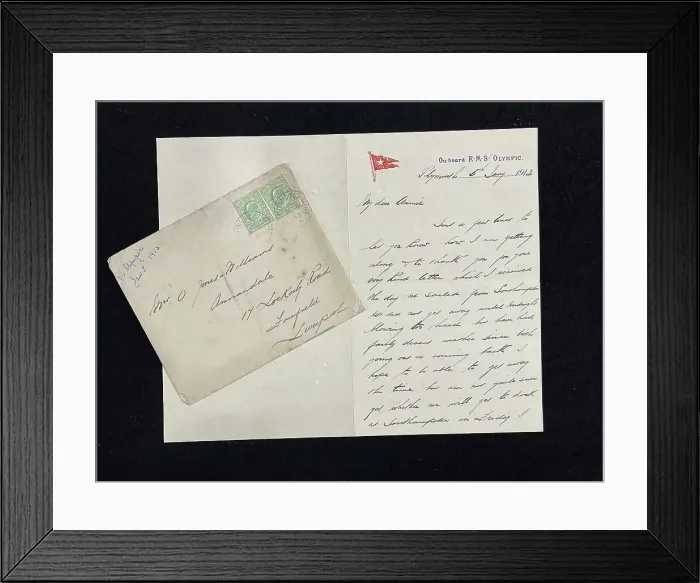 On board R.M.S. "OLYMPIC.
Plymouth 5th Jany 1912
My dear Annie
Just a few lines to
let you know how I am getting
along & to thank you for your
very kind letter which I received
the day we sailed from Southampton
we did not get away until midnight
blowing too hard we have had
fairly decent weather since both
going out & coming back I
hope to be able to get away
this time but am not quite sure
yet whether we will get to dock
at Southampton on Friday I
Olympic
Jan 3 1912
Mrs O Jones Williams
Annandale
17 Lockerby Road
Fairfield
Liverpool